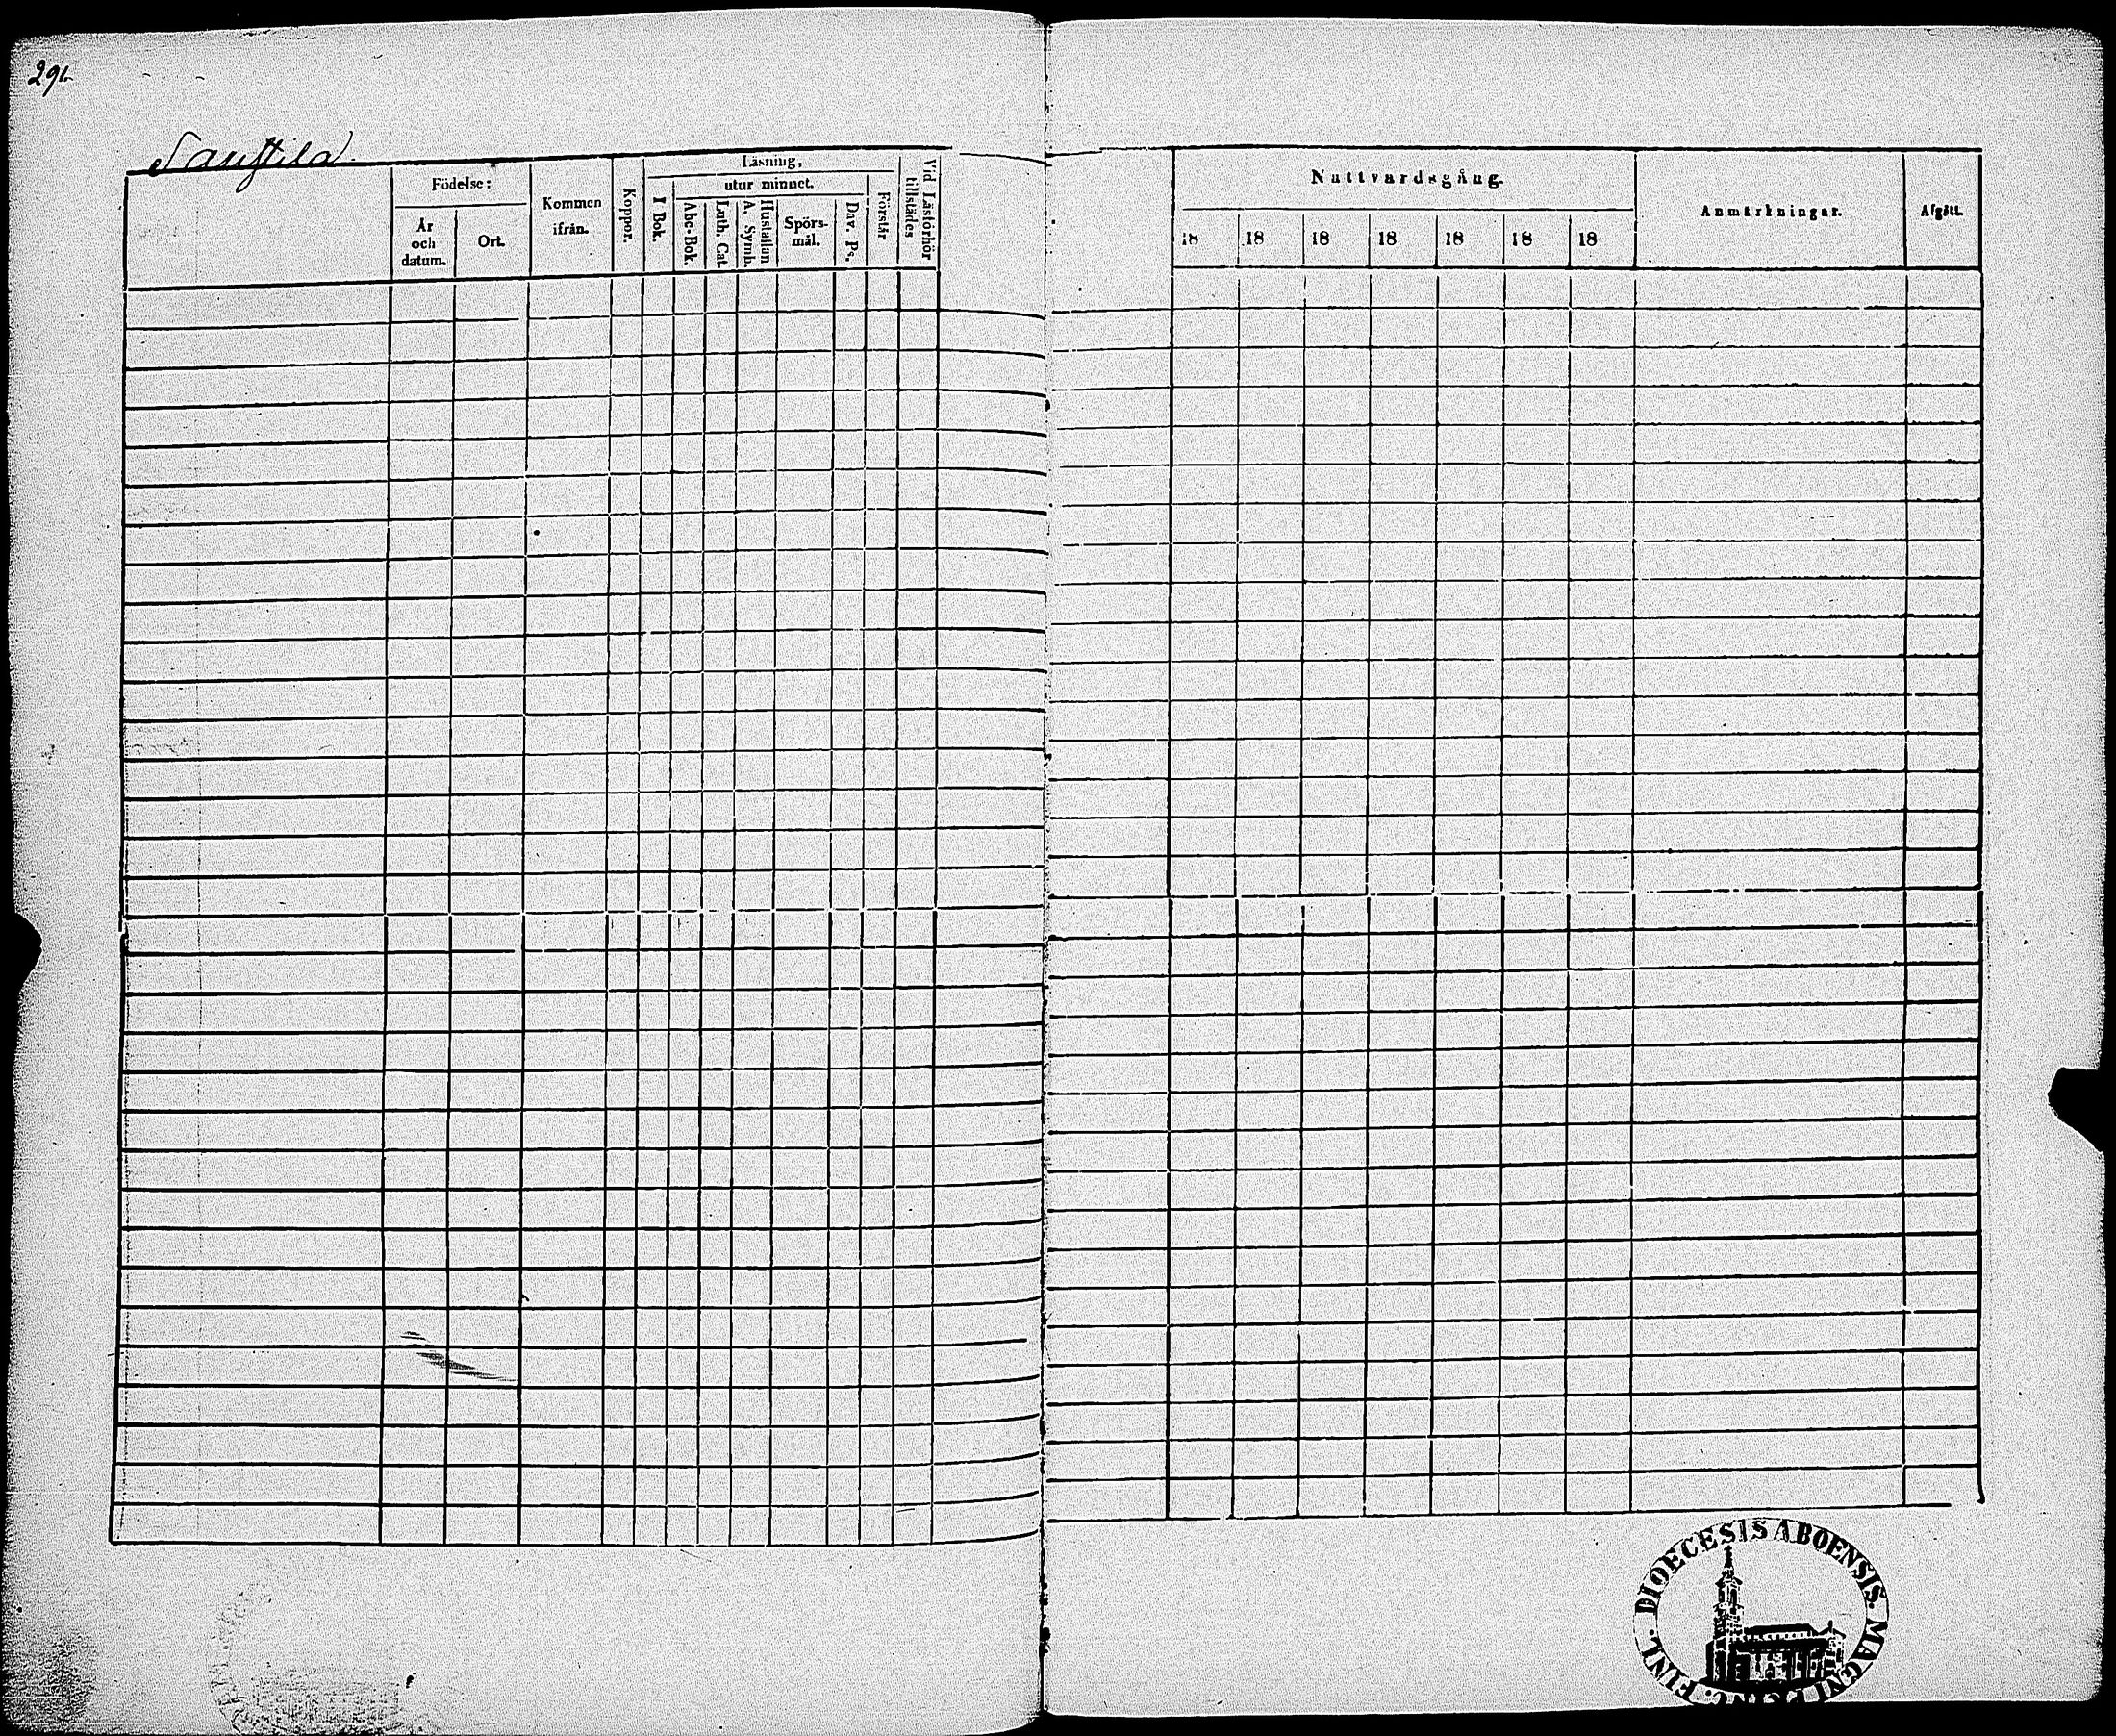 291.
Födelse:
År och datum.
Ort.
Kommen ifrån.
Koppor.
Läsning,
I Bok.
utur minnet.
Abc-Bok.
Luth. Cat.
Hustaflan A. Symb.
Spörs-mål.
Dav. Ps.
Förstår
Vid Läsförhör tillstädes
Nattvardsgång.
18 18 18 18 18 18 18
Anmärkningar.
Afgått.
DIOECESIS ABOENSIS. MAGNI FINL.